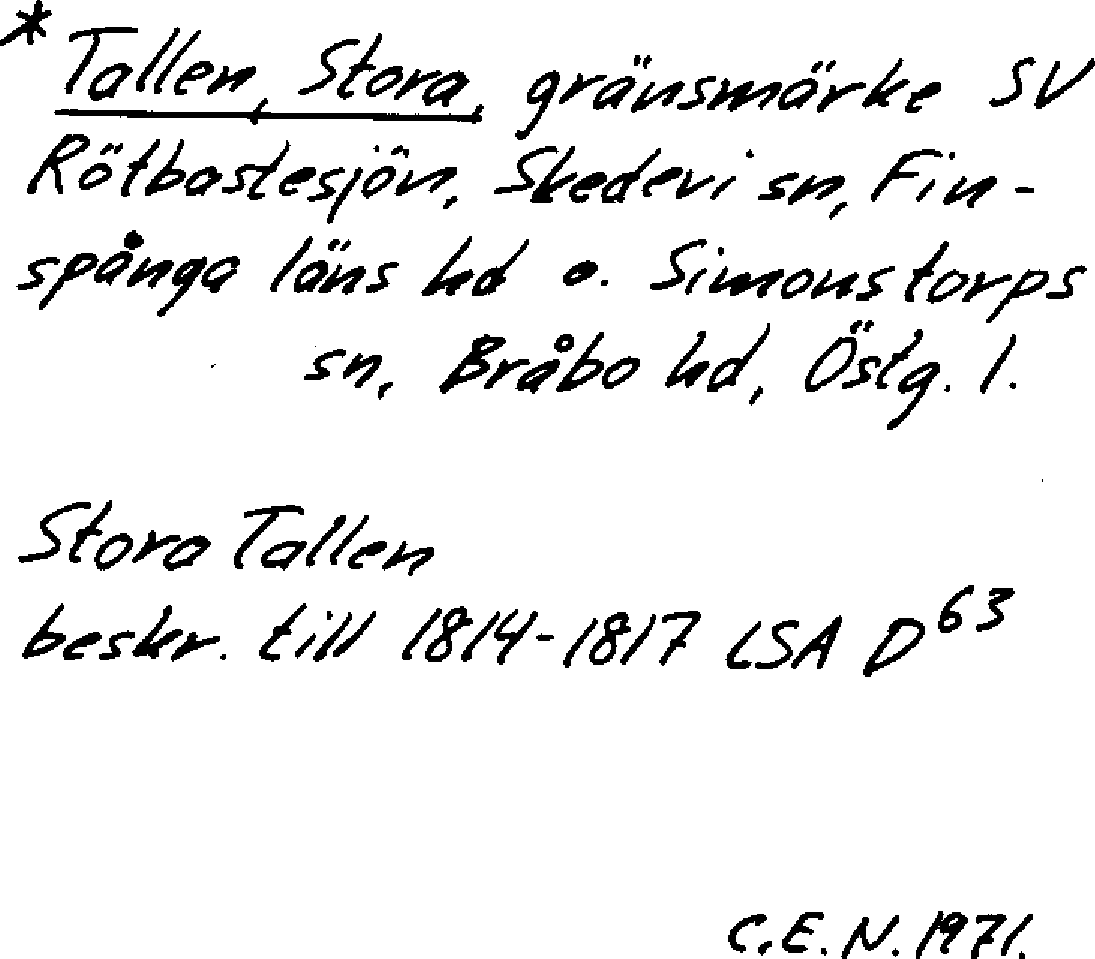 * Tallen, Stora, gränsmärke SV
Rötbastesjön, Skedevi sn, Fin-
spånga läns hd o. Simonstorps
sn, Bråbo hd, Östg. l.
Stora Tallen
beskr. till 1814-1817 LSA D63
C.E.N. 1971.